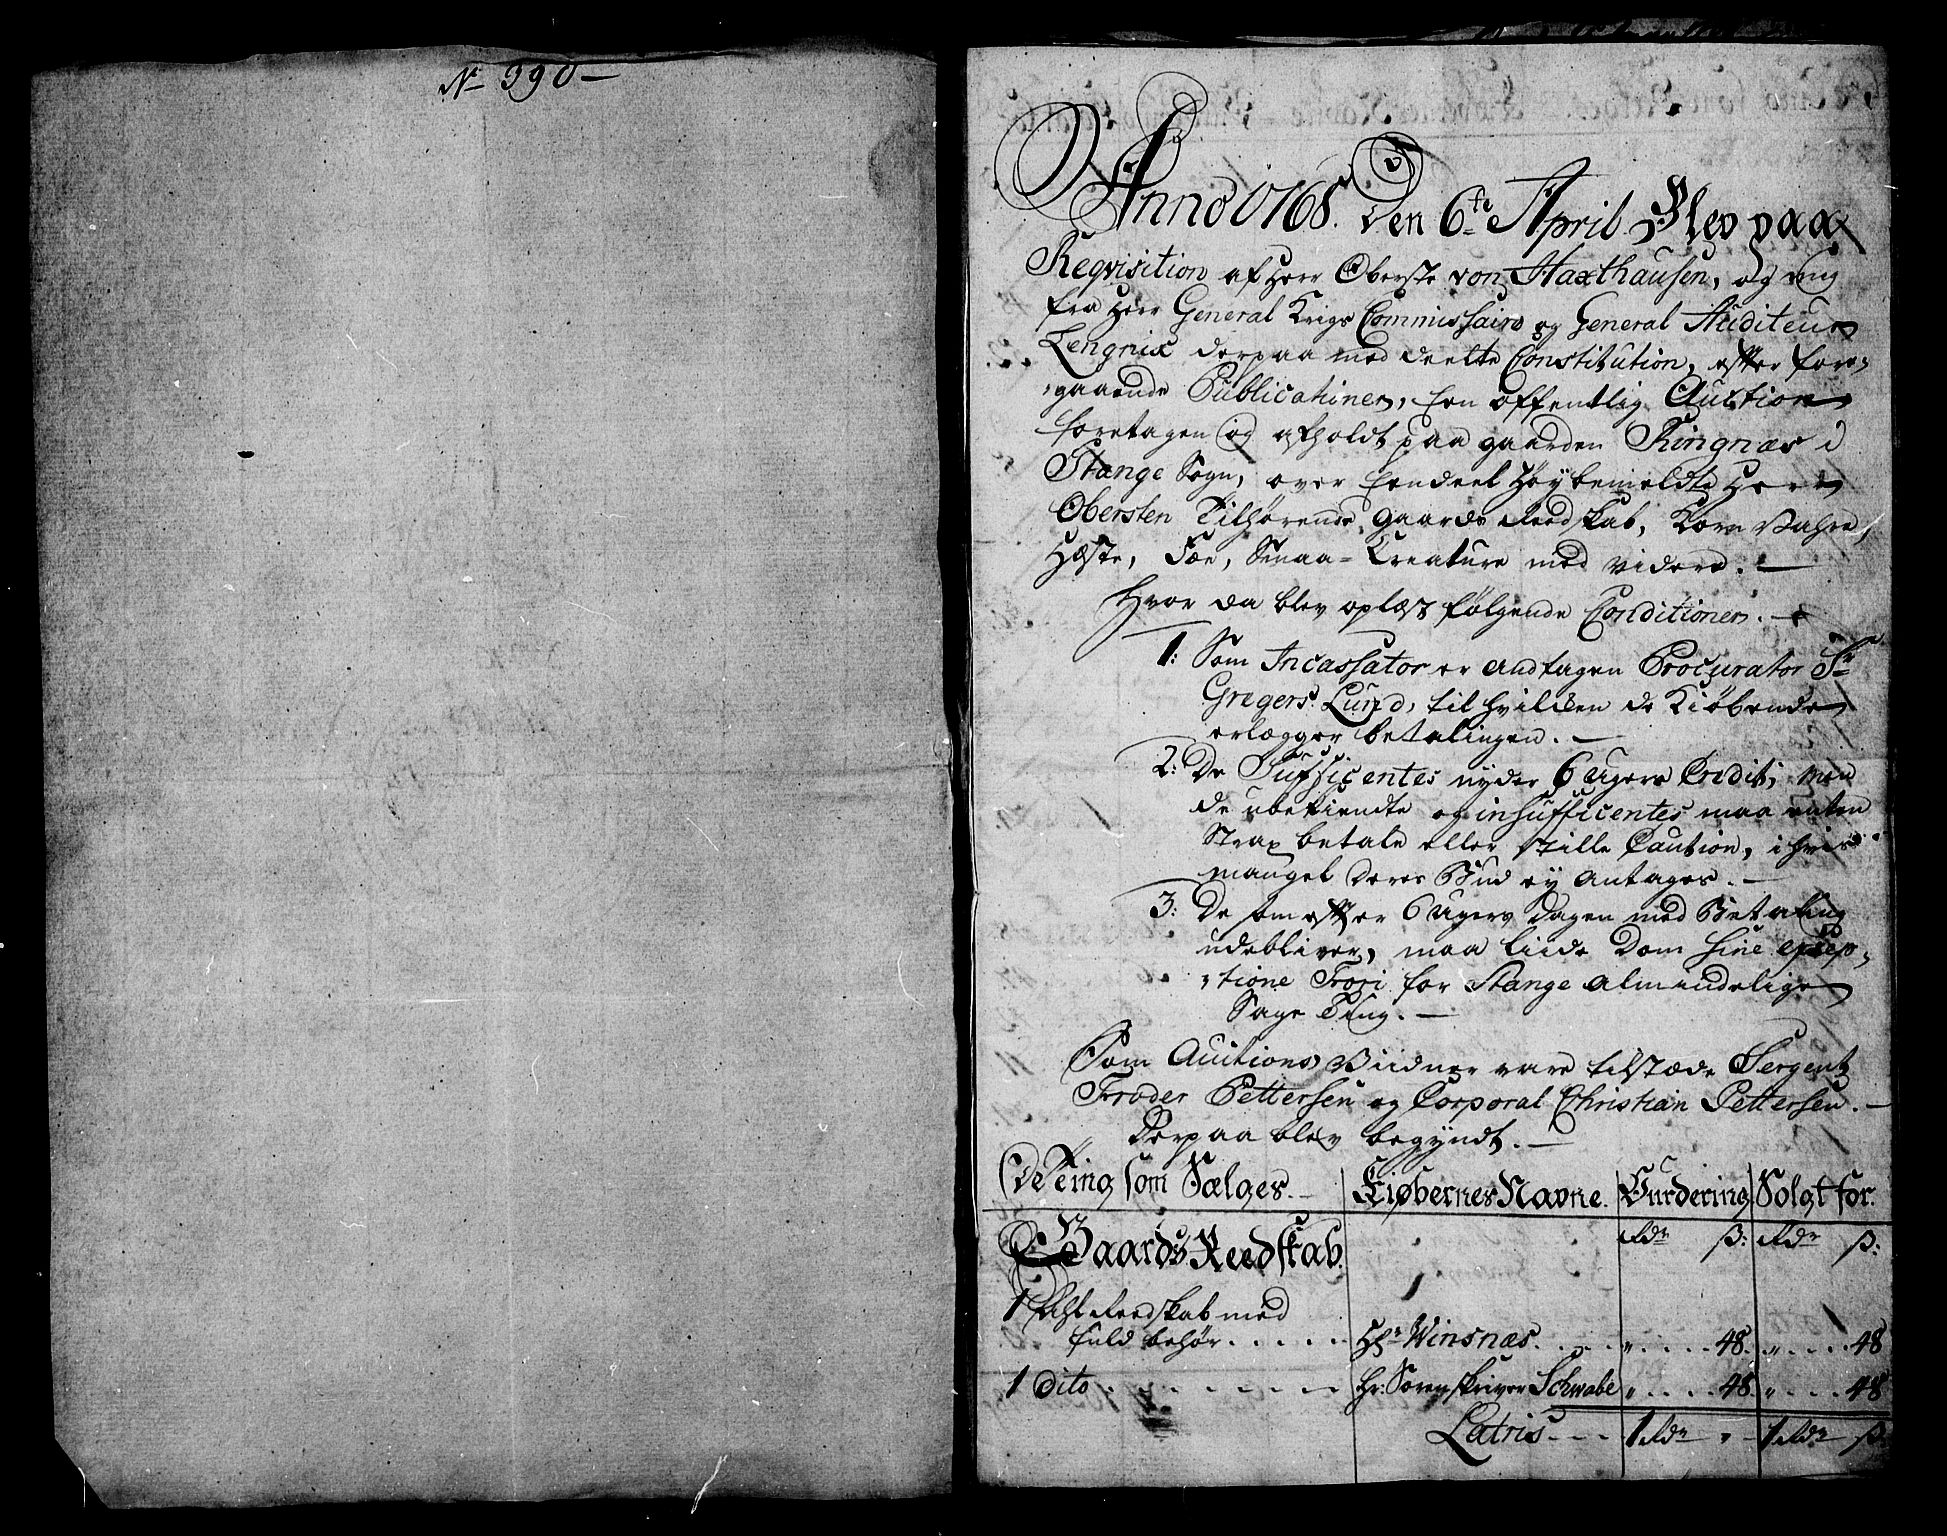 No 390 —
Anno 1768. Den 6te April Blev paa
Reqvisition af Herr Oberste von Haxthausen, og
fra Herr General Krigs Commissaire og General Auditeur
Lengnix derpaa med deelte Constitution, efter fore-
gaaende Publicationer, een offentlig Auction
foretagen og afholdt paa gaarden Ringnæs i
Stange Sogn, over Eendeel Høybemeldte Herr
Obersten Tilhørende Gaards Reedskab, Korn Vahre,
Hæste, Fæe, Smaa-Creature med videre. —
Hvor da blev oplæst følgende Conditioner. —
1: Som Incassator er andtagen Procurator Sr
Gregers Lund, til hvilken de Kiøbende
erlægger betalingen. —
2: De Sufficentes nyder 6 Ugers Credit, men
de ubekiendte og insufficentes maa enten
Strax betale eller stille Caution, i hvis
mangel deres Bud ey antages. —
3: De som efter 6 Ugers Dagen med Betaling
udebliver, maa liide Dom sine excep-
tione Fori for Stange almindelige
Sage Ting. —
Som Auctions Viidner vare tilstæde Sergent
Froder Pettersen og Corporal Christian Pettersen. —
Derpaa blev begyndt. —
De Ting som Sælges. — Kiøbernes Navne. Vurdering Solgt for.
Gaards Reedskab. Rdr ß: Rdr ß:
1 Reedskab med
fuld behør . . . . . Hr Winsnæs . . . . „ . . . . 48. „ . . . . 48
1 dito . . . . . . . Hr: Sorenskriver Schwabe „ . . . . 48. „ . . . . 48
Latris . . . 1 Rdr „ — 1 Rdr ß